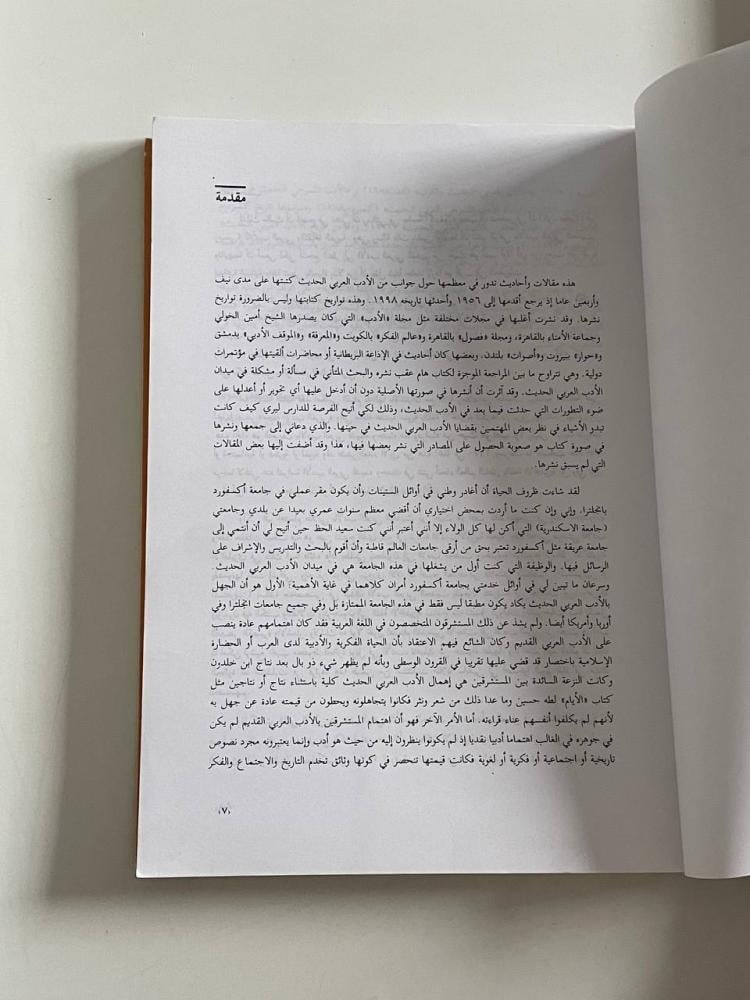 مقدمة
هذه مقالات وأحاديث تدور في معظمها حول جوانب من الأدب العربي الحديث كتبتها على مدى نيف
وأربعين عاما إذ يرجع أقدمها إلى ١٩٥٦ وأحدثها تاريخه ١٩٩٨. وهذه تواريخ كتابتها وليس بالضرورة تواريخ
نشرها. وقد نشرت أغلبها في مجلات مختلفة مثل مجلة «الأدب» التي كان يصدرها الشيخ أمين الخولي
وجماعة الأمناء بالقاهرة، ومجلة «فصول» بالقاهرة و«عالم الفكر» بالكويت و«المعرفة» و«الموقف الأدبي» بدمشق
و«حوار» ببيروت و«أصوات» بلندن. وبعضها كان أحاديث في الإذاعة البريطانية أو محاضرات ألقيتها في مؤتمرات
دولية. وهي تتراوح ما بين المراجعة الموجزة لكتاب هام عقب نشره والبحث المتأني في مسألة أو مشكلة في ميدان
الأدب العربي الحديث. وقد آثرت أن أنشرها في صورتها الأصلية دون أن أدخل عليها أي تحوير أو أعدلها على
ضوء التطورات التي حدثت فيما بعد في الأدب الحديث، وذلك لكي أتيح الفرصة للدارس ليرى كيف كانت
تبدو الأشياء في نظر بعض المهتمين بقضايا الأدب العربي الحديث في حينها. والذي دعاني إلى جمعها ونشرها
في صورة كتاب هو صعوبة الحصول على المصادر التي نشر بعضها فيها، هذا وقد أضفت إليها بعض المقالات
التي لم يسبق نشرها.
لقد شاءت ظروف الحياة أن أغادر وطني في أوائل الستينات وأن يكون مقر عملي في جامعة أكسفورد
بانجلترا. وإني وإن كنت ما أردت بمحض اختياري أن أقضي معظم سنوات عمري بعيدا عن بلدي وجامعتي
(جامعة الاسكندرية) التي أكن لها كل الولاء إلا أنني أعتبر أنني كنت سعيد الحظ حين أتيح لي أن أنتمي إلى
جامعة عريقة مثل أكسفورد تعتبر بحق من أرقى جامعات العالم قاطبة وأن أقوم بالبحث والتدريس والإشراف على
الرسائل فيها. والوظيفة التي كنت أول من يشغلها في هذه الجامعة هي في ميدان الأدب العربي الحديث.
وسرعان ما تبين لي في أوائل خدمتي بجامعة أكسفورد أمران كلاهما في غاية الأهمية. الأول هو أن الجهل
بالأدب العربي الحديث يكاد يكون مطبقا ليس فقط في هذه الجامعة الممتازة بل وفي جميع جامعات انجلترا وفي
أوربا وأمريكا أيضا. ولم يشذ عن ذلك المستشرقون المتخصصون في اللغة العربية فقد كان اهتمامهم عادة ينصب
على الأدب العربي القديم وكان الشائع فيهم الاعتقاد بأن الحياة الفكرية والأدبية لدى العرب أو الحضارة
الإسلامية باختصار قد قضي عليها تقريبا في القرون الوسطى وبأنه لم يظهر شيء ذو بال بعد نتاج ابن خلدون
وكانت النزعة السائدة بين المستشرقين هي إهمال الأدب العربي الحديث كلية باستثناء نتاج أو نتاجين مثل
كتاب «الأيام» لطه حسين وما عدا ذلك من شعر ونثر فكانوا يتجاهلونه ويحطون من قيمته عادة عن جهل به
لأنهم لم يكلفوا أنفسهم عناء قراءته. أما الأمر الآخر فهو أن اهتمام المستشرقين بالأدب العربي القديم لم يكن
في جوهره في الغالب اهتماما أدبيا نقديا إذ لم يكونوا ينظرون إليه من حيث هو أدب وإنما يعتبرونه مجرد نصوص
تاريخية أو اجتماعية أو فكرية أو لغوية فكانت قيمتها تنحصر في كونها وثائق تخدم التاريخ والاجتماع والفكر
‹٧›